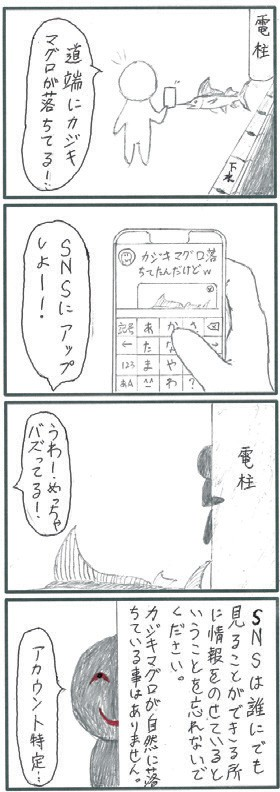 電柱
道端にカジキ
マグロが落ちてる！！
SNSにアップ
しよー！！
カジキマグロ落
ちてたんだけどw
記号 あ か
← た な →
123 ま や
あA ^^ わ ?
電柱
うわー！めっちゃ
バズってる！！
SNSは誰にでも
見ることができる所
に情報をのせていると
いうことを忘れないで
ください。
カジキマグロが自然に落
ちている事はありません。
アカウント特定…